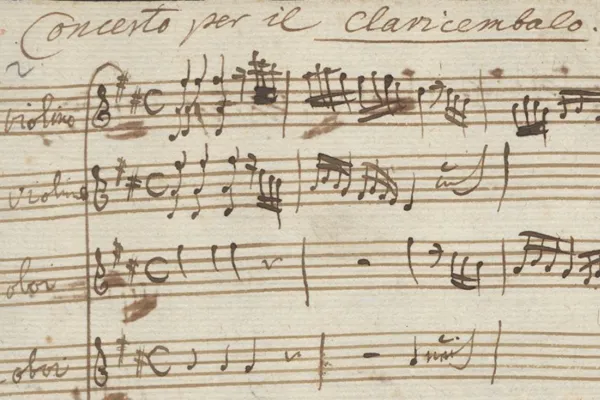 Concerto per il Clavicembalo.
violino
violino
oboi
oboi